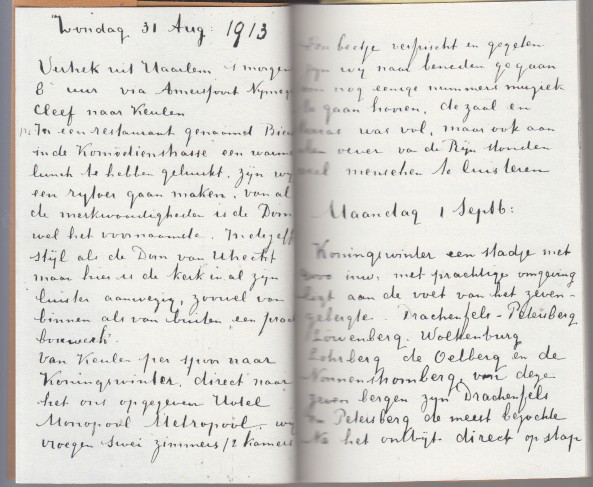 Zondag 31 Aug: 1913
Vertrek uit Haarlem 's morgen
8 uur via Amersfoort Nijmeg
Cleef naar Keulen
In een restaurant genaamd Bier
in de Komödienstrasse een warme
lunch te hebben gebruikt, zijn wij
een rijtoer gaan maken, van al
de merkwaardigheden is de Dom
wel het voornaamste. In dezelf
stijl als de Dom van Utrecht
maar hier is de kerk in al zijn
luister aanwezig, zoowel van
binnen als van buiten, een prac
bouwwerk.
Van Keulen per spoor naar
Koningswinter, direct naar
het ons opgegeven Hotel
Monopool Metropool, wij
vroegen twei zimmers/2 kamers
een beetje verfrischt en gegeten
zijn wij naar beneden gegaan
om nog eenige nummers muziek
te gaan hooren, de zaal en
terras was vol, maar ook aan
den oever van de Rijn stonden
veel menschen te luisteren
Maandag 1 Septb:
Koningswinter een stadje met
inw: met prachtige omgeving
ligt aan de voet van het zeven-
gebergte. Drachenfels - Petersberg
Löwenberg. Wolkenburg
Lohrberg de Oelberg en de
Nonnenstromberg, van deze
zeven bergen zijn Drachenfels
en Petersberg de meest bezochte
Na het ontbijt direct op stap